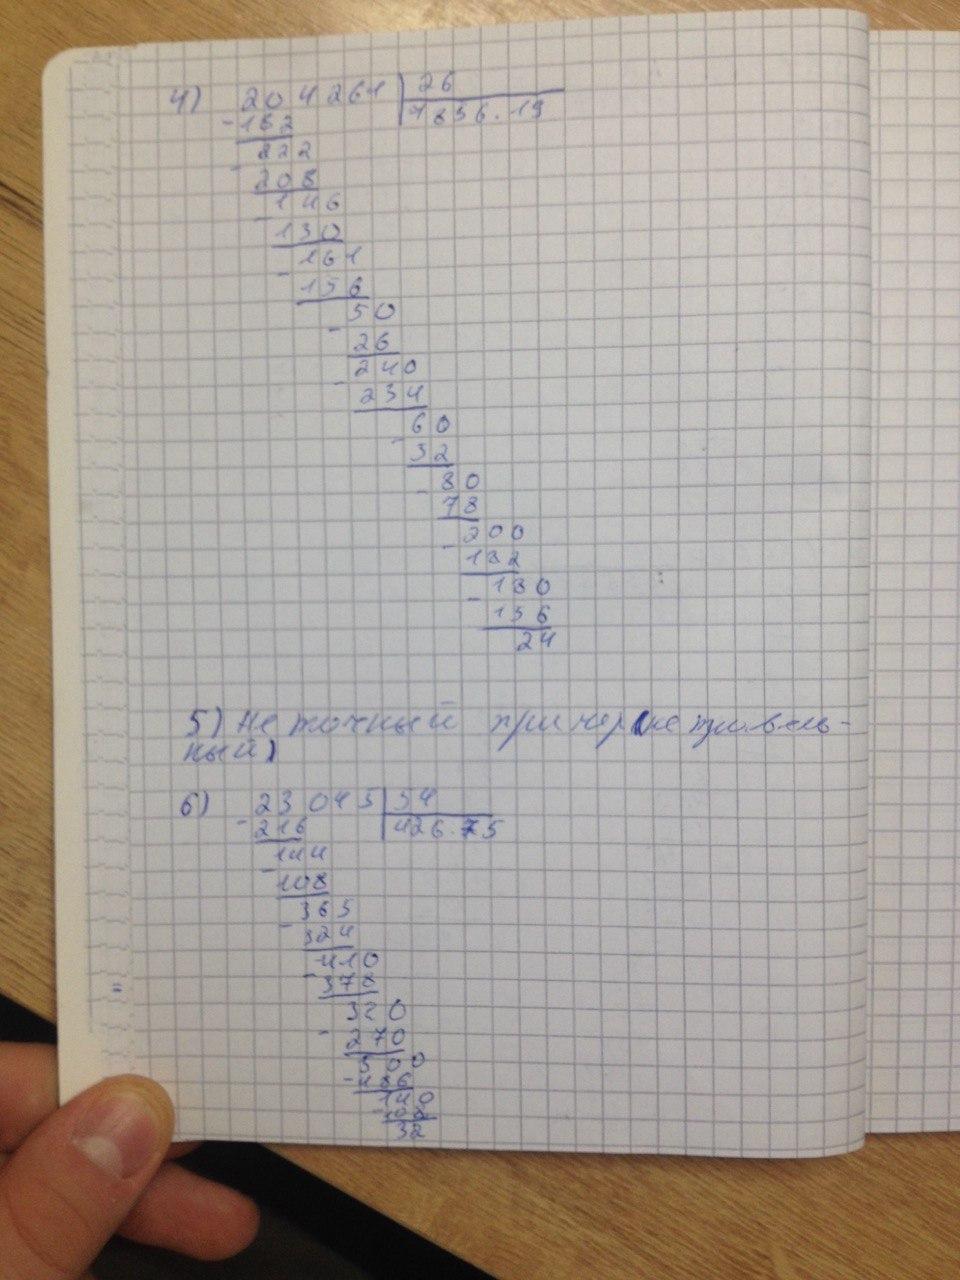 4) 204261 26
-182 7856.19
222
-208
146
-130
161
-156
50
-26
240
-234
60
-32
80
-78
200
-182
180
-156
24
5) Не точный пример (не правиль-
ный)
6) 23045 54
-216 426.75
144
-108
365
-324
410
-378
320
-270
500
-486
140
-108
32